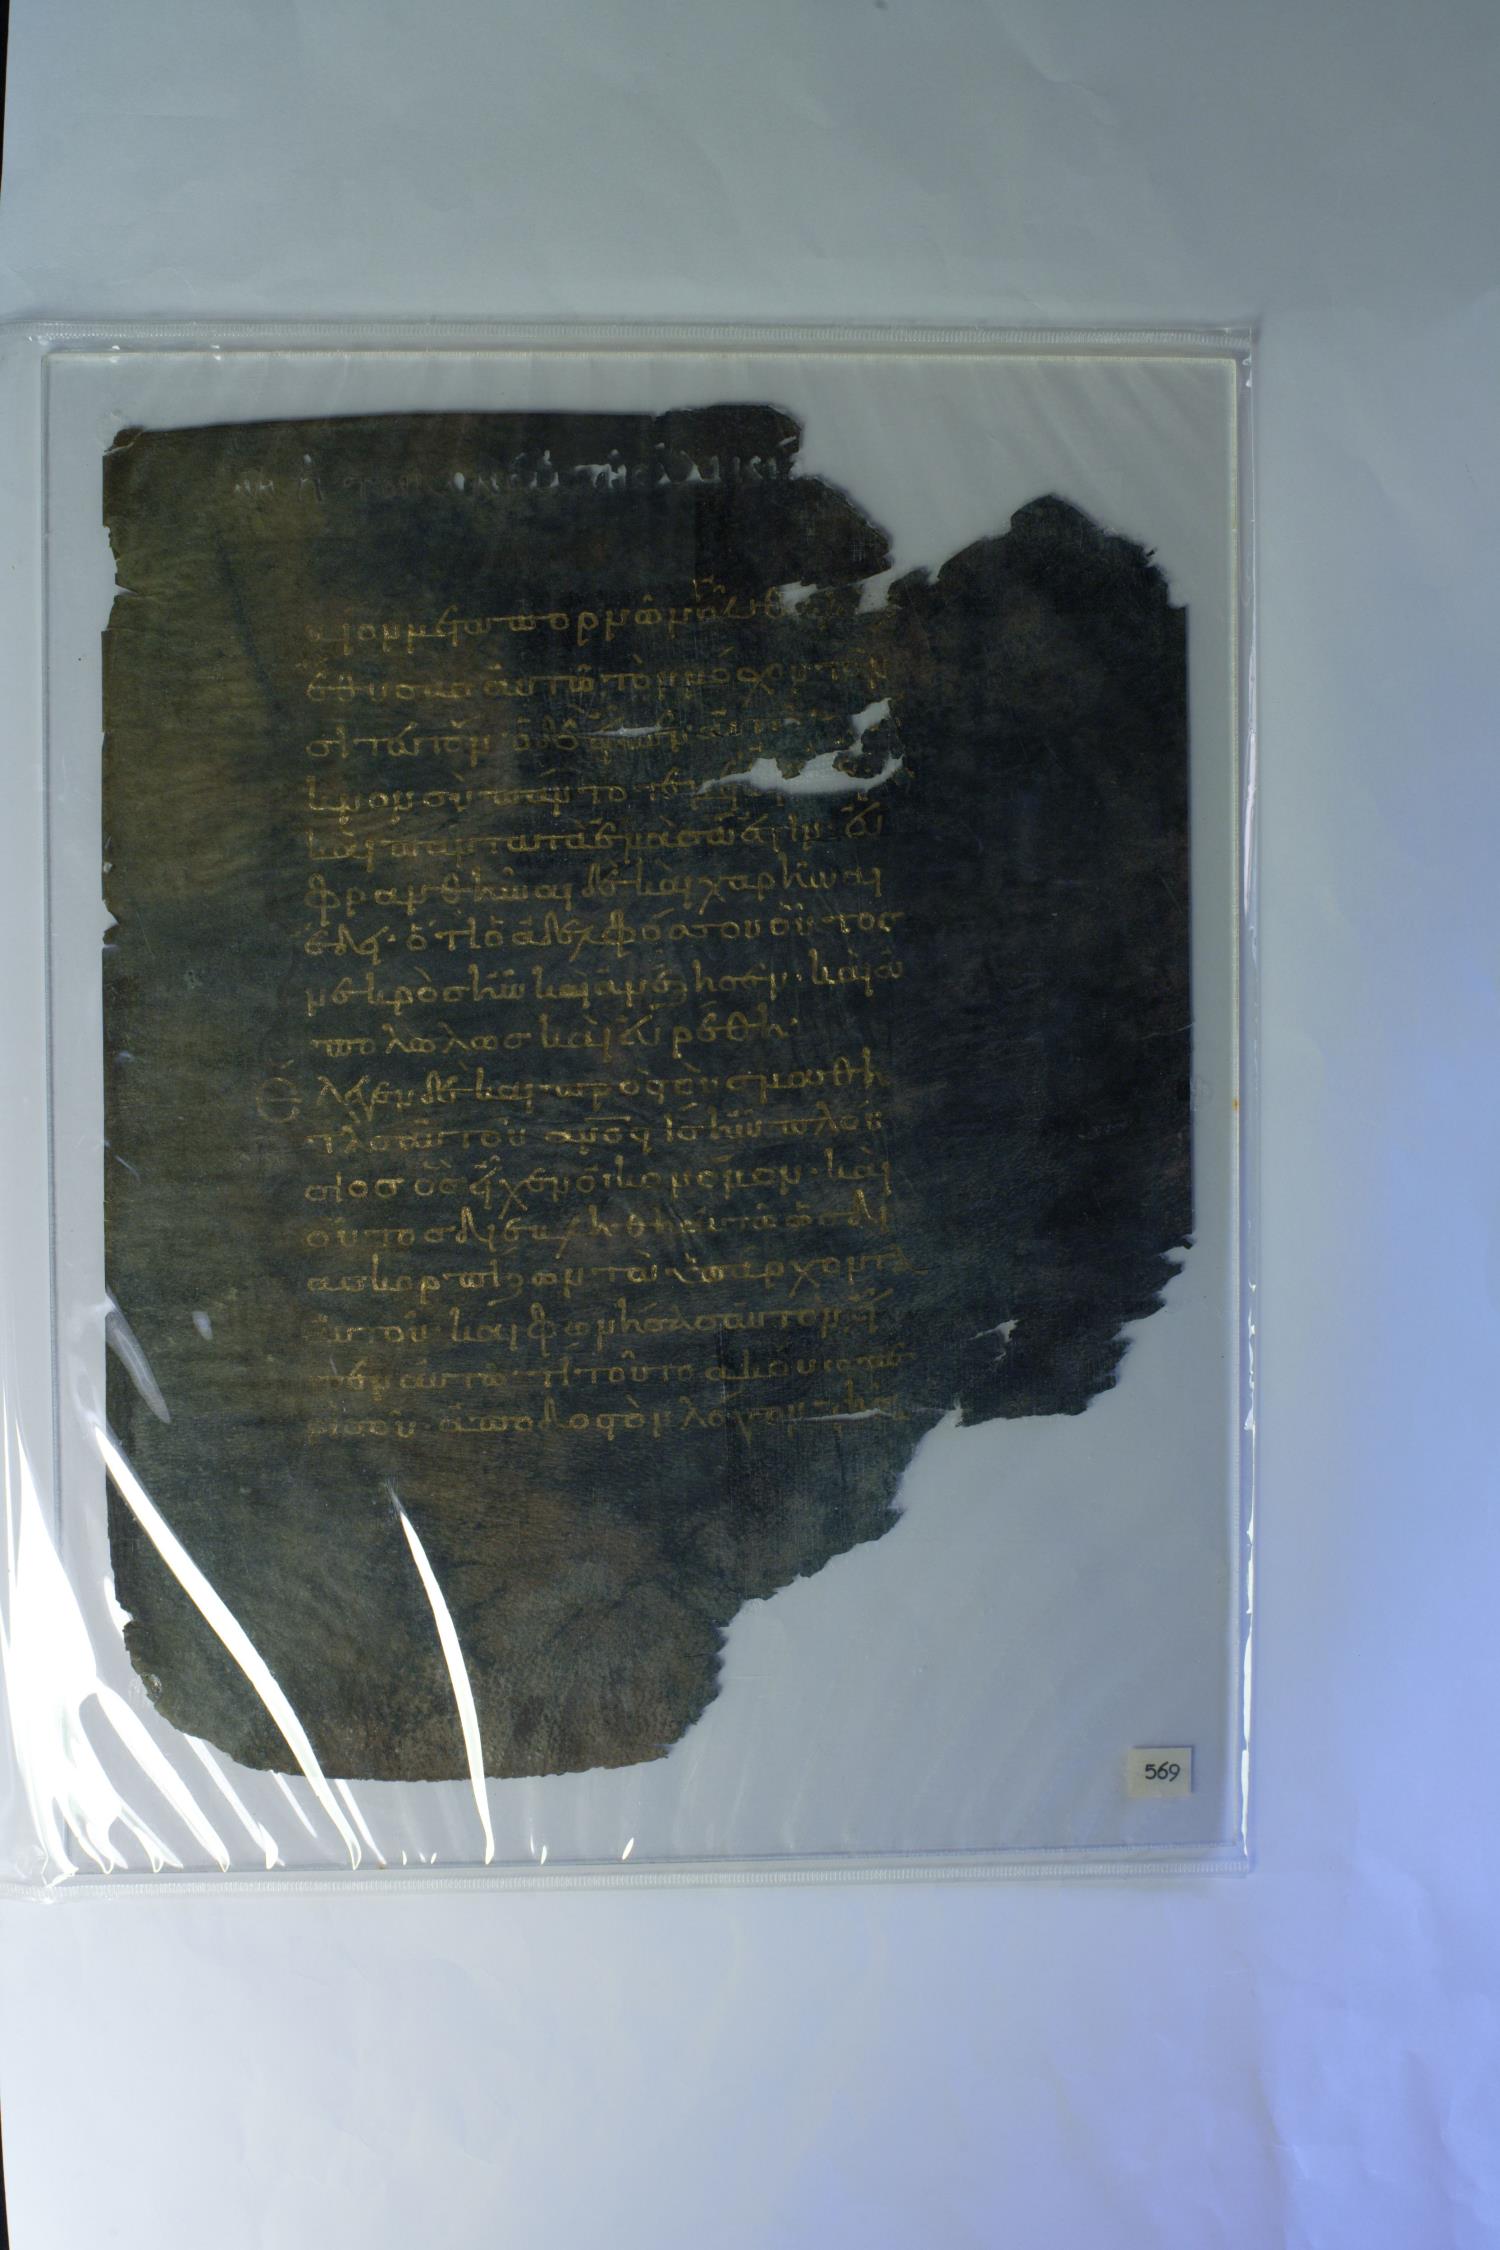 βίον μετὰ πορνῶν ἦλθεν
ἔθυσας αὐτῶ τὸν μόσχον τὸν
σιτευτόν ὁ δὲ εἶπεν αὐτῶ
κνον σὺ πάντοτε μετ
καὶ πάντα τὰ ἐμὰ σά ἐστιν· εὐ
φρανθῆναι δὲ καὶ χαρῆναι
ἔδει· ὅτι ὁ ἀδελφός σου οὗτος
νεκρὸς ἦν καὶ ἀνέζησεν· καὶ ἀ
πολωλὼς καὶ εὑρέθη·
Ἔλεγεν δὲ καὶ πρὸς τοὺς μαθη
τὰς αὐτοῦ ανος τις ἦν πλού
σιος ὃς εἶχεν οἰκονόμον· καὶ
οὗτος διεβλήθη αὐτῶ ὡς δι
ασκορπίζων τὰ ὑπάρχοντα
αὐτοῦ· καὶ φωνήσας αὐτὸν εἶ
πεν αὐτῶ· τί τοῦτο ἀκούω πε
ρὶ σοῦ· ἀπόδος τὸν λόγον τῆς
569